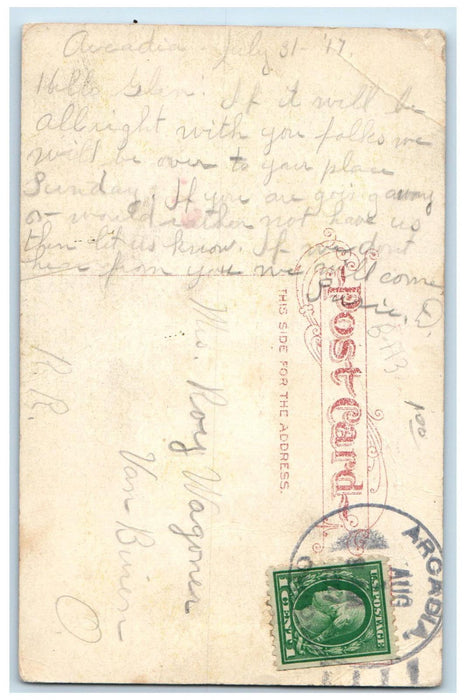 Arcadia - July 31 - '17.
Hello Glen: If it will be
allright with you folks we
will be over to your place
Sunday. If you are going away
or would rather not have us
then let us know. If we dont
hear from you we will come
D.
Post Card
THIS SIDE FOR THE ADDRESS.
Mrs. Roy Wagoner
Van Buren
O
R. R.
1 00
ARCADIA
AUG
U.S. POSTAGE
1 CENT 1